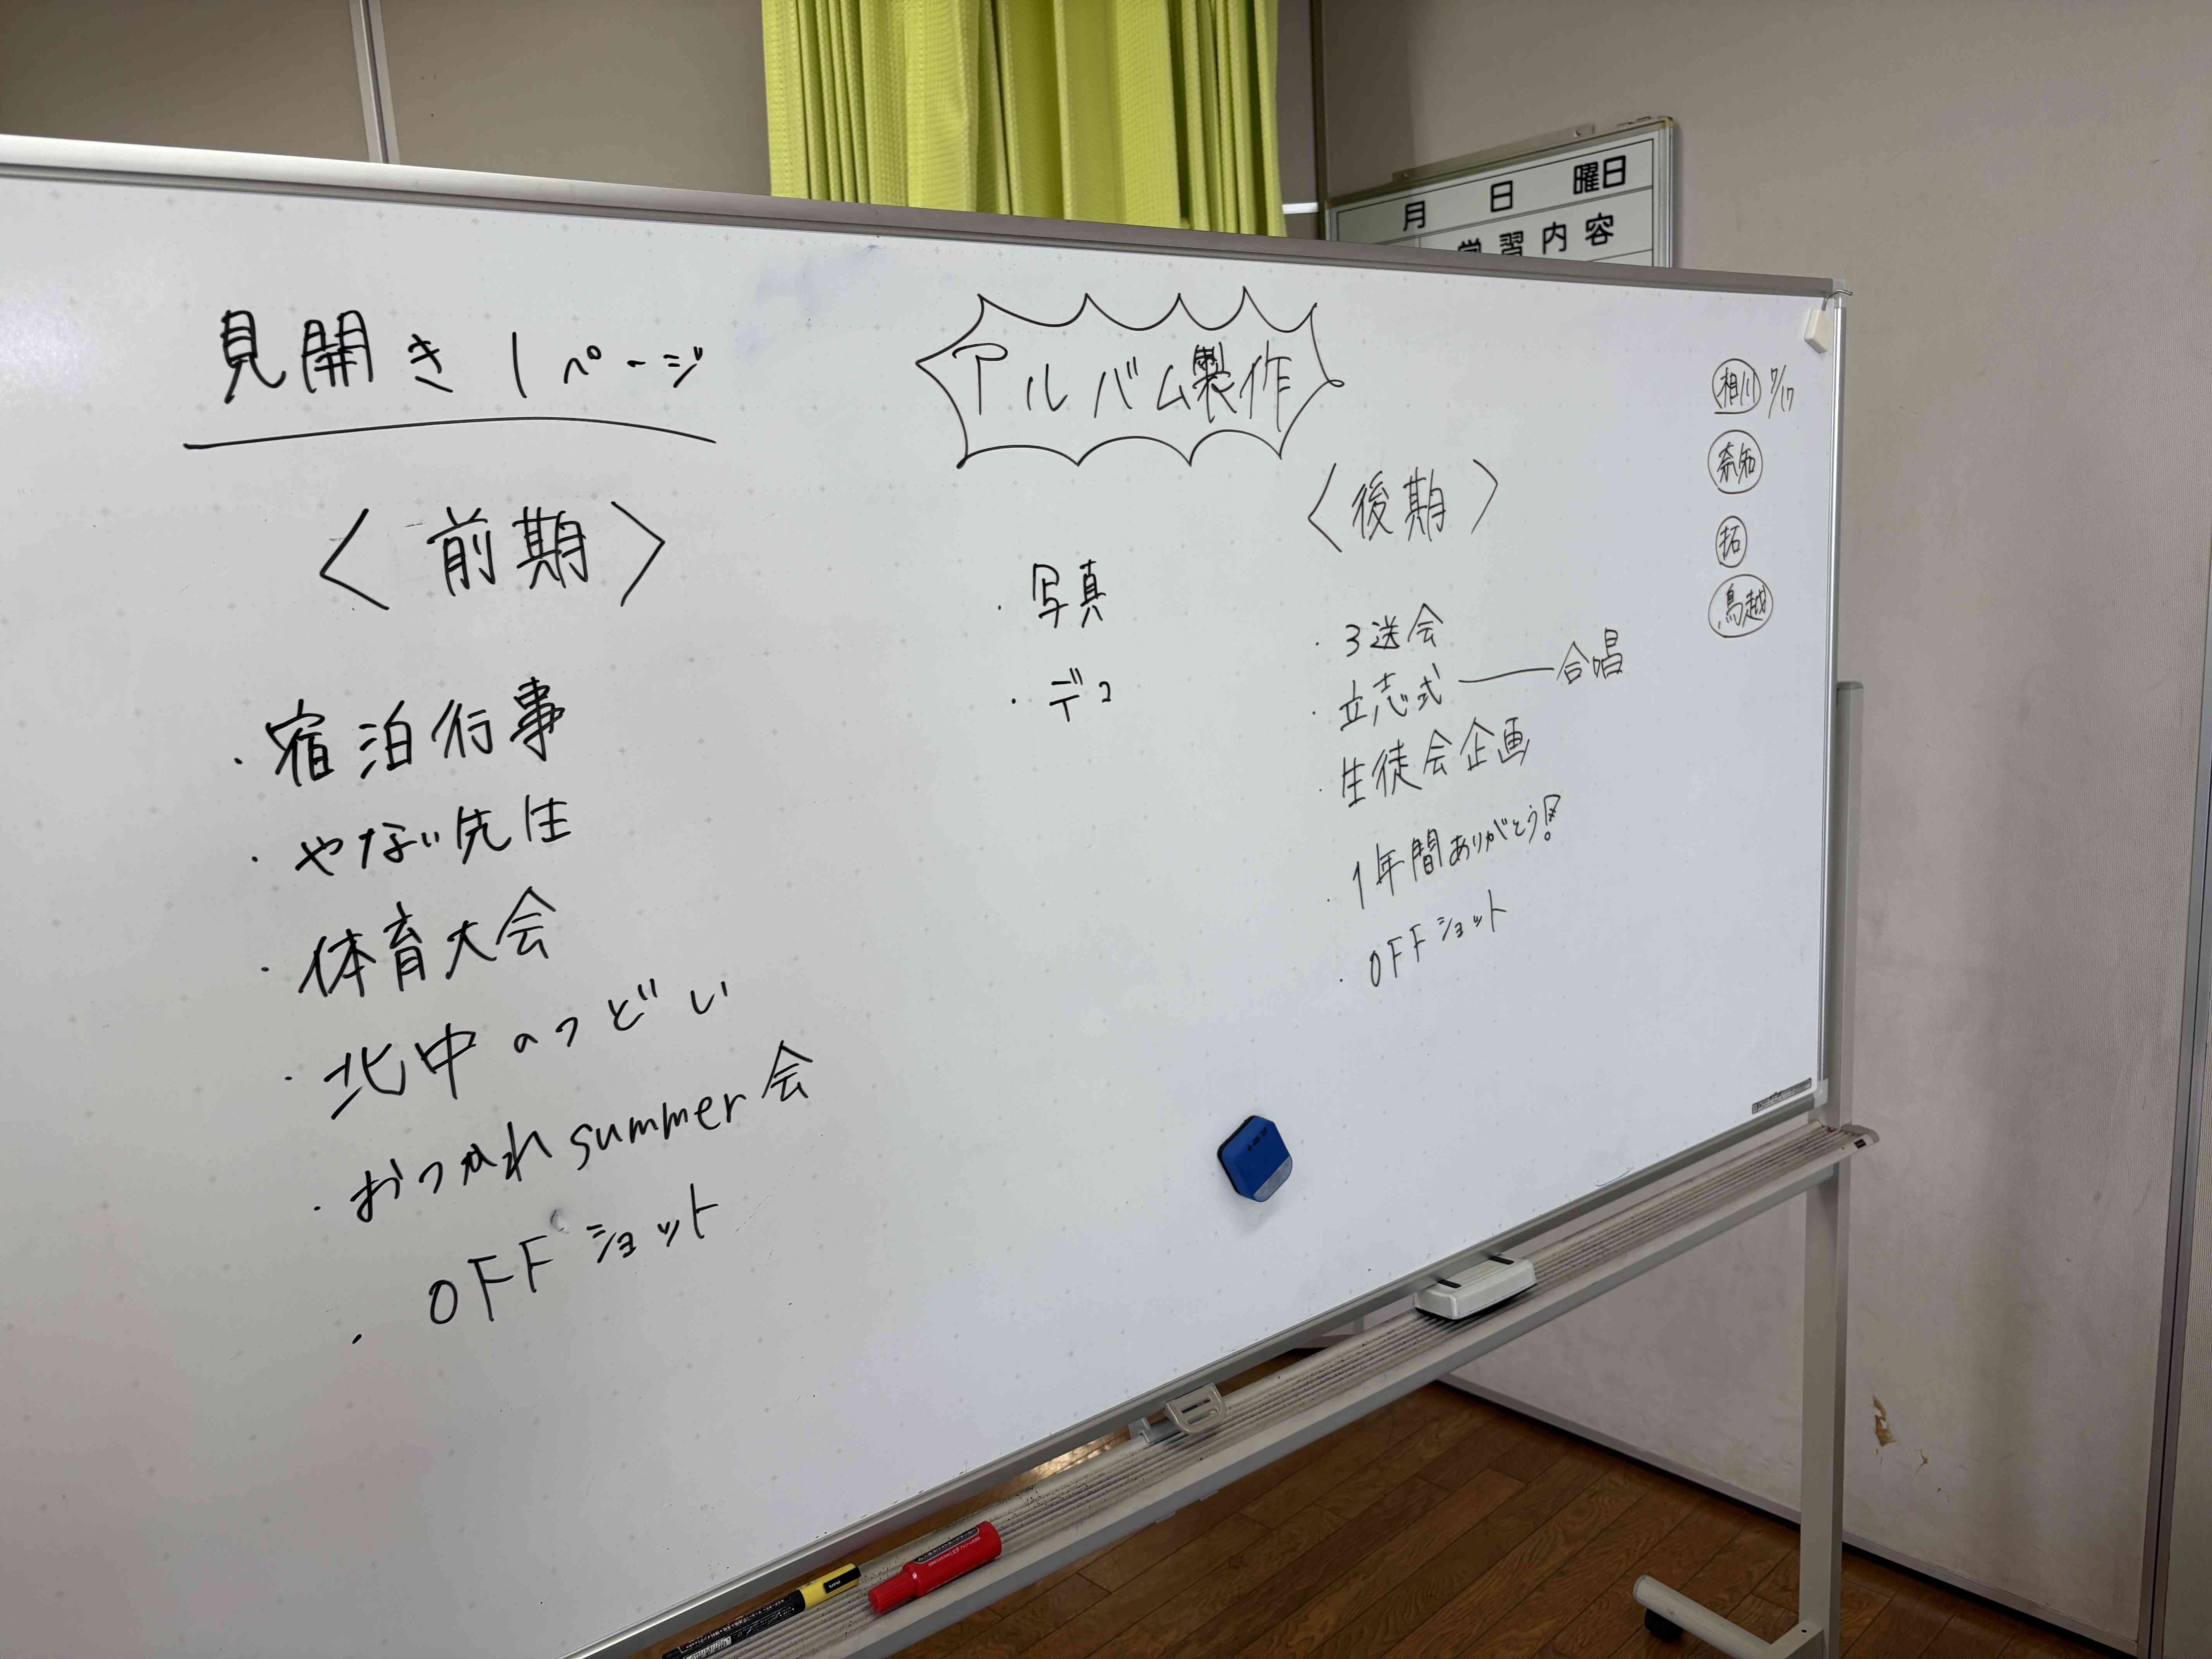 月 日 曜日
学習内容
見開き 1ページ
アルバム製作
〈前期〉
・宿泊行事
・やない先生
・体育大会
・北中のつどい
・おつかれsummer会
・OFFショット
・写真
・デコ
〈後期〉
・3送会
・立志式 — 合唱
・生徒会企画
・1年間ありがとう!
・OFFショット
相川 7/17
拓
鳥越